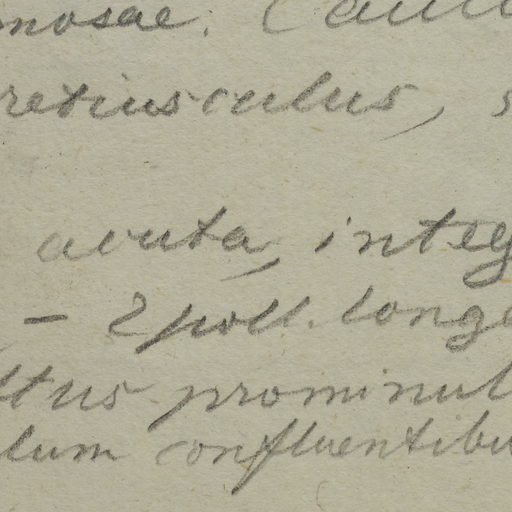 nosae. Caul
retiusculus, s
acuta, integ
- 2 poll. longa
ltus prominul
lum confluentibu